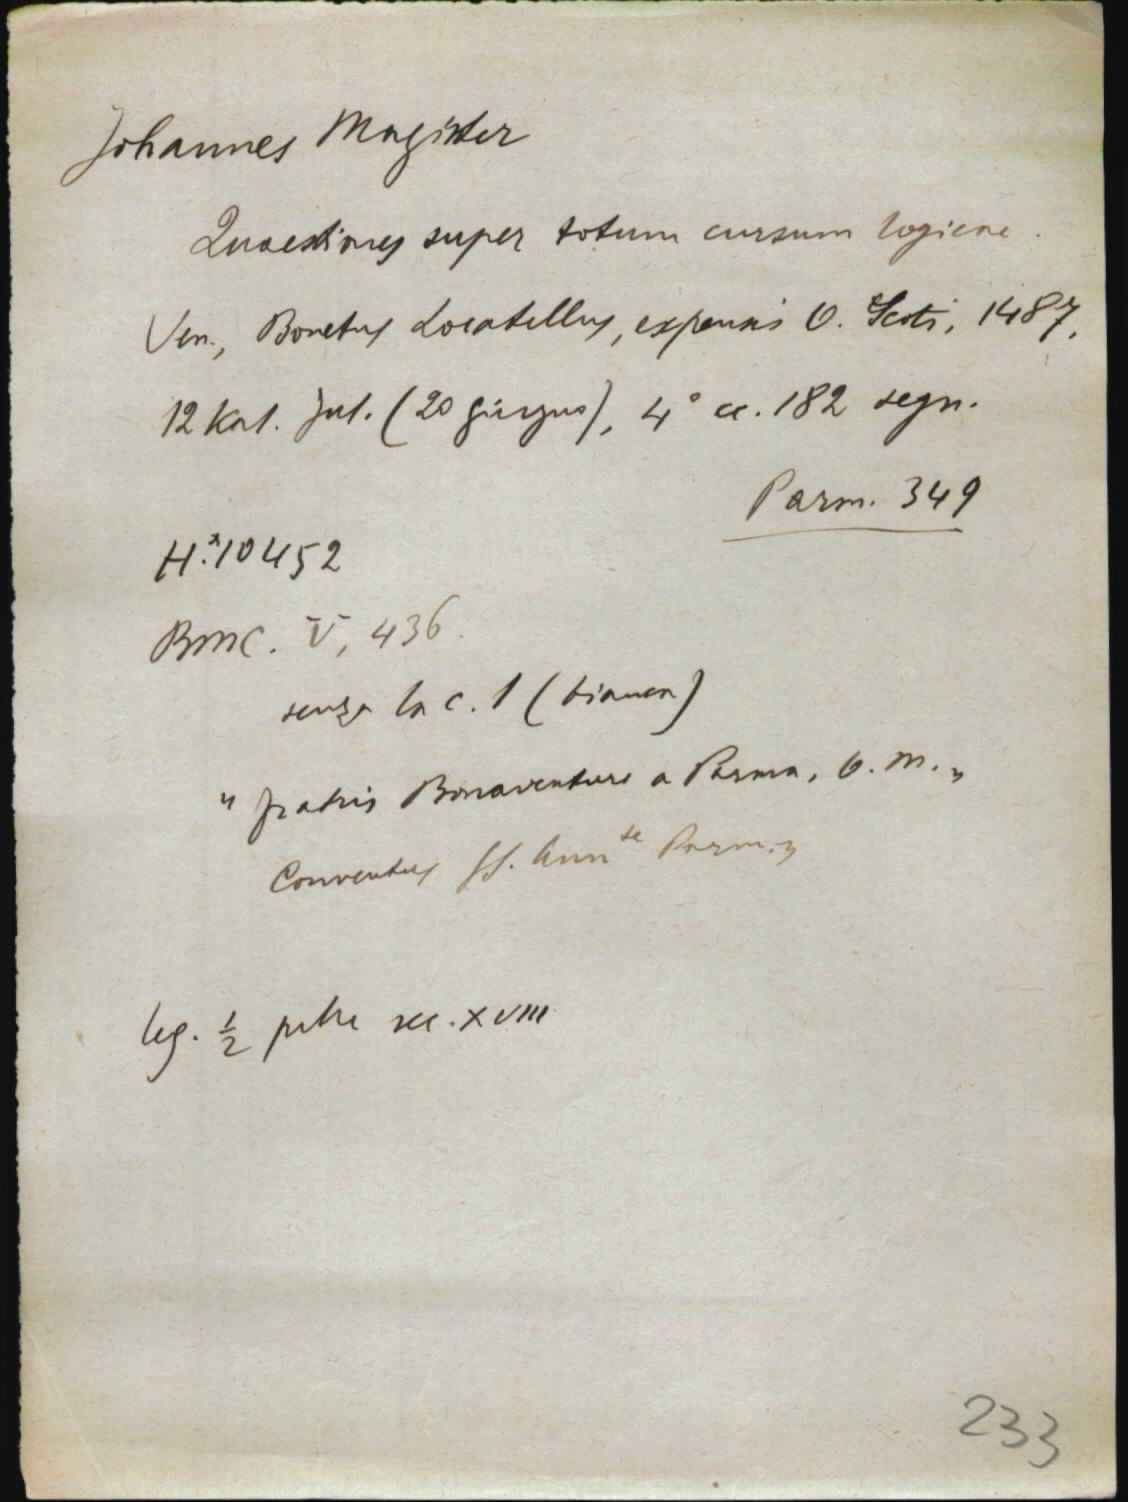 Johannes Magister
Quaestiones super totum cursum logicae.
Ven., Bonetus Locatellus, expensis O. Scoti, 1487,
12 Kal. Jul. (20 giugno), 4° cc. 182 segn.
Parm. 349
H.*10452
BMC. V, 436.
senza la c. 1 (bianca)
"fratris Bonaventure a Parma, O. M.„
Conventus SS. Ann te Parm.„
leg. 1/2 pelle sec. XVIII
233